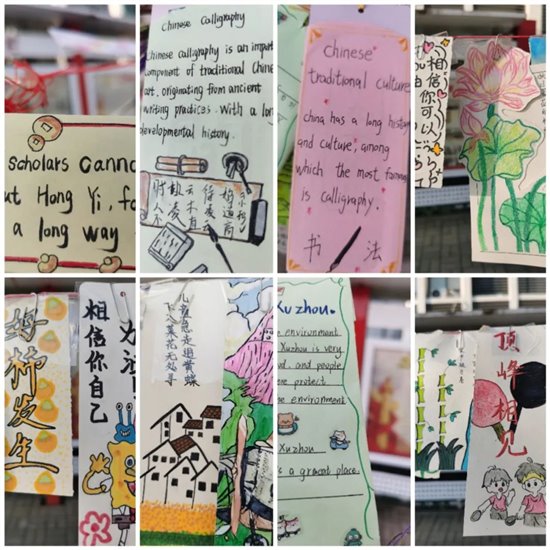 scholars canno
ut Hong Yi, fo
a long way
Chinese Calligraphy
Chinese calligraphy is an impor
component of traditional Chine
art, originating from ancient
writing practices. With a lon
developmental history.
chinese
traditional culture
china has a long history
and culture, among
which the most famous
is calligraphy.
书 法
相信你可以
好柿发生
相信你自己
儿童急走追黄蝶
飞入菜花无处寻
Xuzhou
environment
Xuzhou is very
and people
protect
environment
Xuzhou
is a great place.
顶峰相见